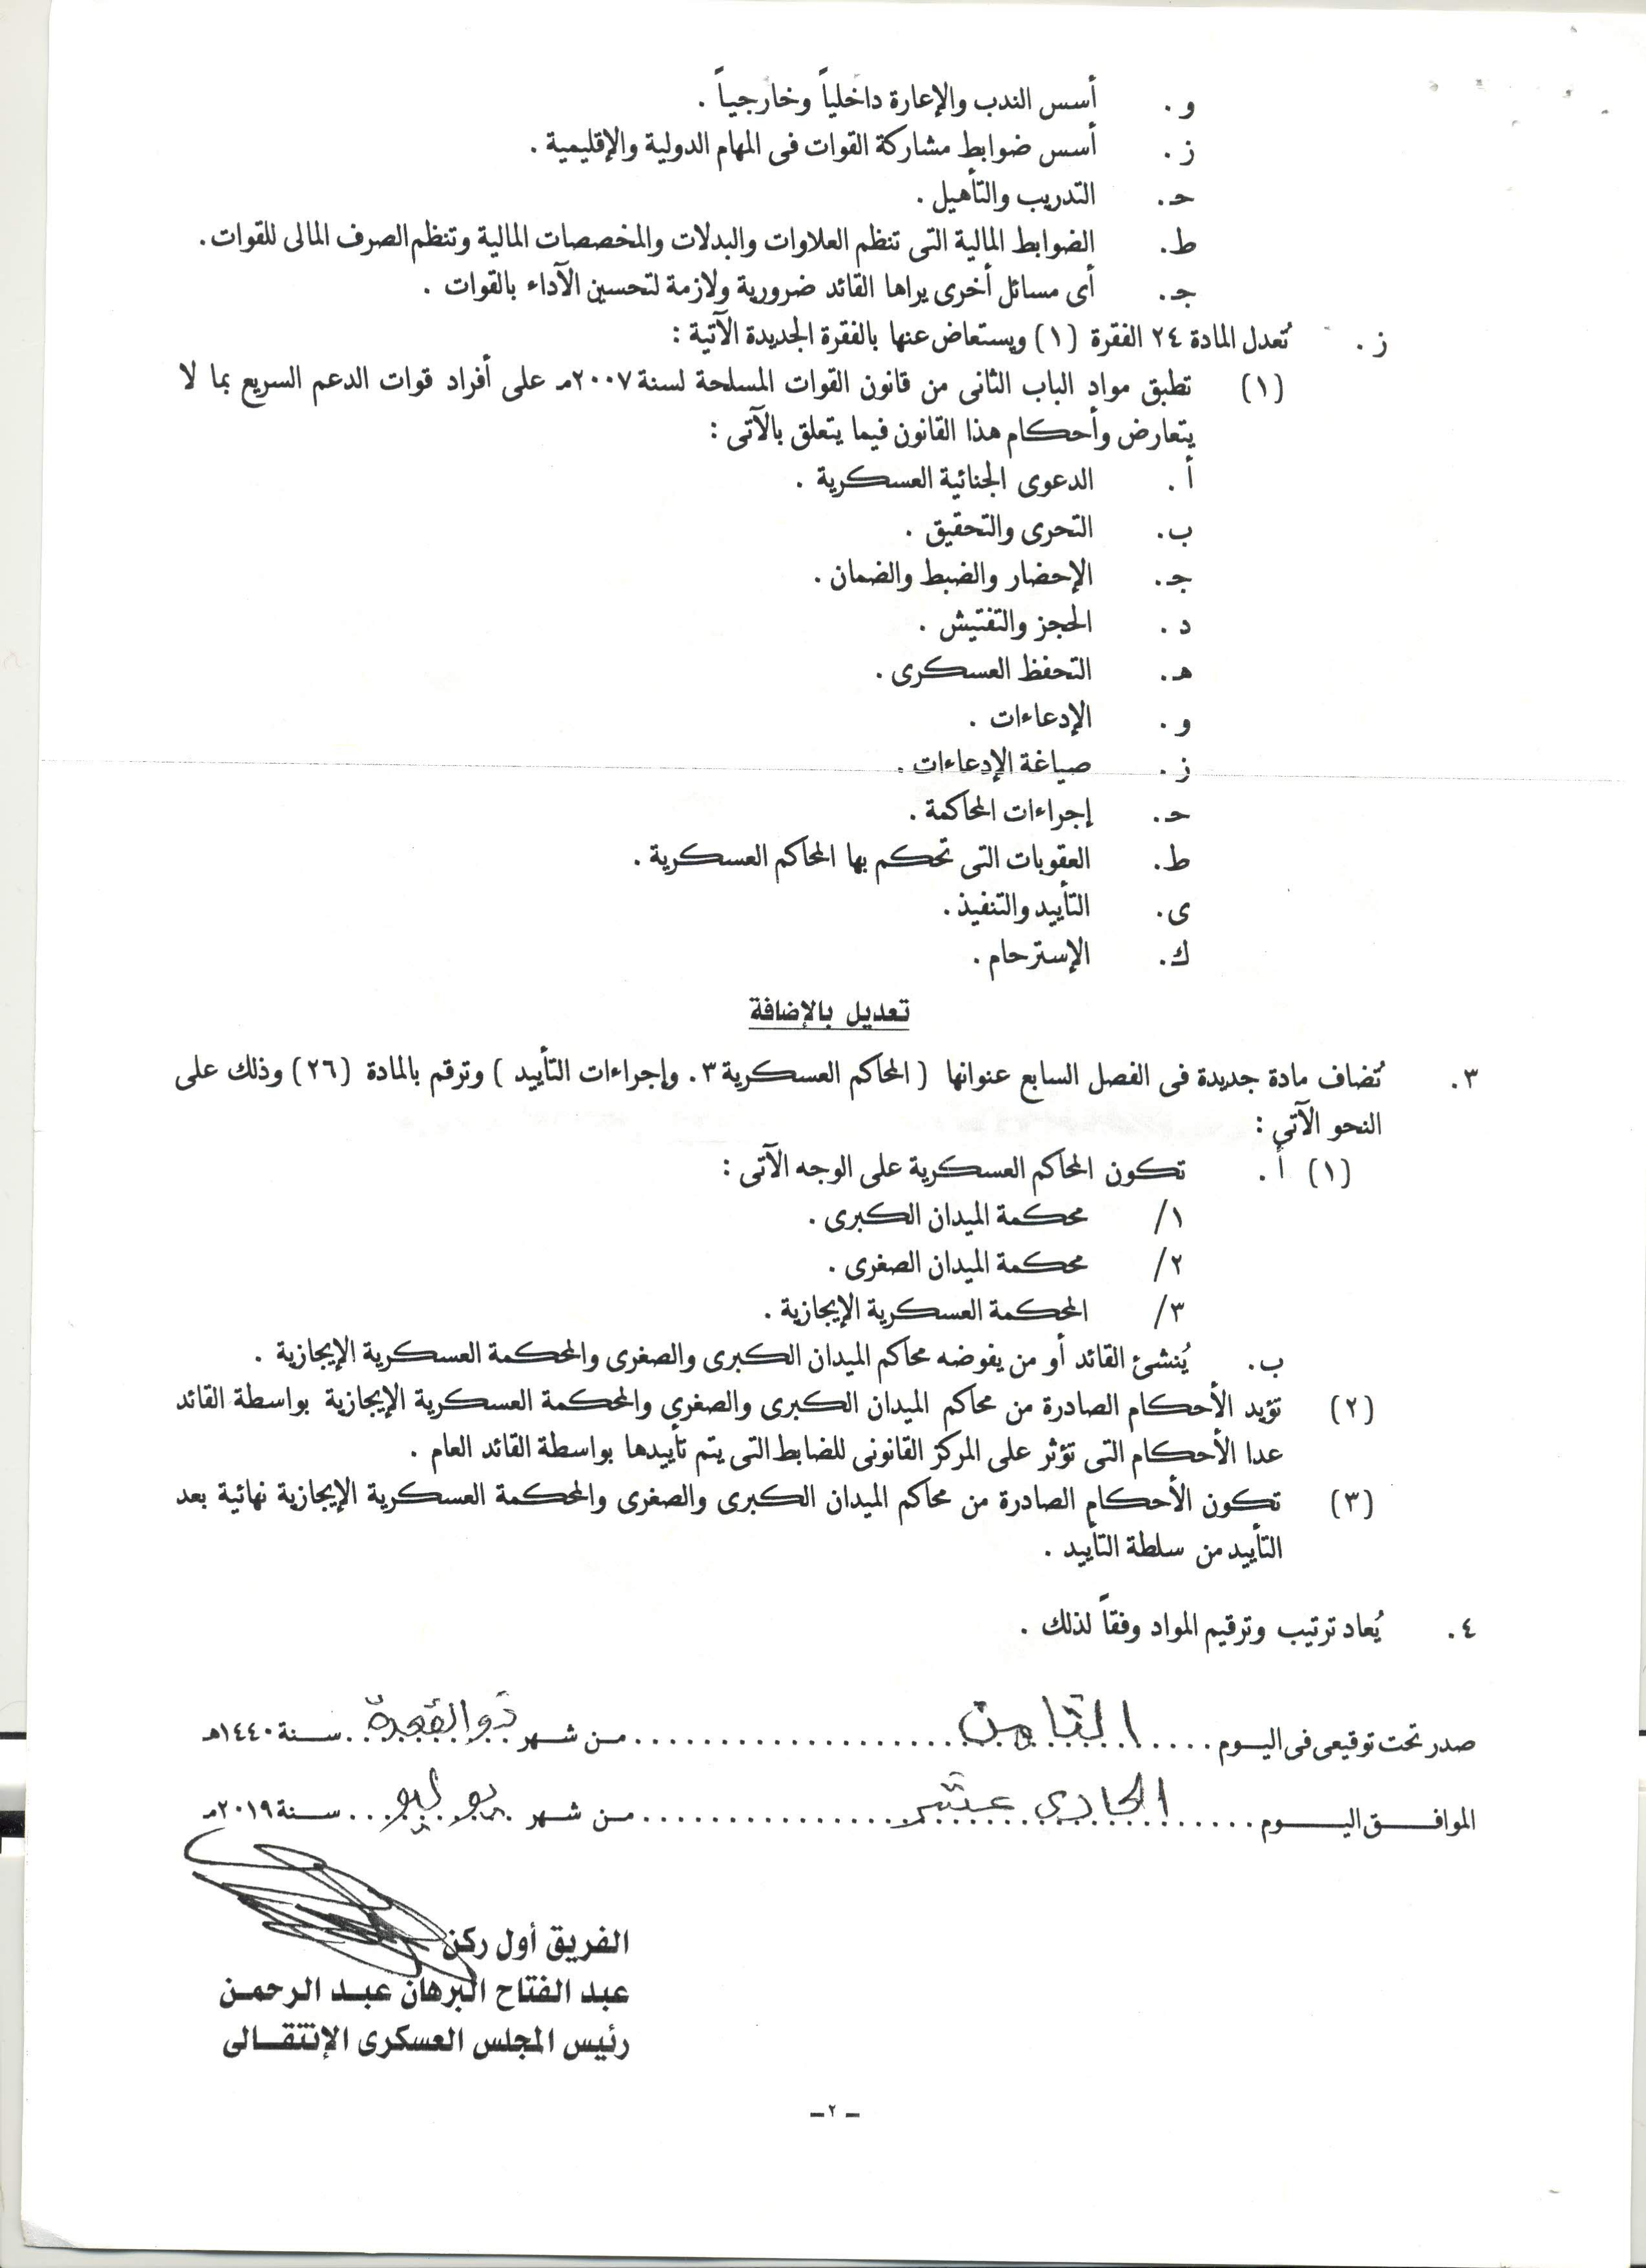 و . أسس الندب والإعارة داخلياً وخارجياً .
ز . أسس ضوابط مشاركة القوات فى المهام الدولية والإقليمية .
حـ. التدريب والتأهيل .
ط. الضوابط المالية التى تنظم العلاوات والبدلات والمخصصات المالية وتنظم الصرف المالى للقوات .
جـ. أى مسائل أخرى يراها القائد ضرورية ولازمة لتحسين الآداء بالقوات .
ز . تُعدل المادة ٢٤ الفقرة (١) ويستعاض عنها بالفقرة الجديدة الآتية :
(١) تطبق مواد الباب الثانى من قانون القوات المسلحة لسنة ٢٠٠٧مـ على أفراد قوات الدعم السريع بما لا
يتعارض وأحكام هذا القانون فيما يتعلق بالآتى :
أ . الدعوى الجنائية العسكرية .
ب. التحرى والتحقيق .
جـ. الإحضار والضبط والضمان .
د . الحجز والتفتيش .
هـ. التحفظ العسكرى .
و . الإدعاءات .
ز . صياغة الإدعاءات .
حـ. إجراءات المحاكمة .
ط. العقوبات التى تحكم بها المحاكم العسكرية .
ى. التأييد والتنفيذ .
ك. الإسترحام .
تعديل بالإضافة
٣. تُضاف مادة جديدة فى الفصل السابع عنوانها ( المحاكم العسكرية ٣. وإجراءات التأييد ) وترقم بالمادة (٢٦) وذلك على
النحو الآتي :
(١) أ . تكون المحاكم العسكرية على الوجه الآتى :
١/ محكمة الميدان الكبرى .
٢/ محكمة الميدان الصغرى .
٣/ المحكمة العسكرية الإيجازية .
ب. يُنشئ القائد أو من يفوضه محاكم الميدان الكبرى والصغرى والمحكمة العسكرية الإيجازية .
(٢) تؤيد الأحكام الصادرة من محاكم الميدان الكبرى والصغرى والمحكمة العسكرية الإيجازية بواسطة القائد
عدا الأحكام التى تؤثر على المركز القانونى للضابط التى يتم تأييدها بواسطة القائد العام .
(٣) تكون الأحكام الصادرة من محاكم الميدان الكبرى والصغرى والمحكمة العسكرية الإيجازية نهائية بعد
التأييد من سلطة التأييد .
٤. يُعاد ترتيب وترقيم المواد وفقاً لذلك .
صدر تحت توقيعى فى اليـوم .... الثامن .... مـن شهـر ذو القعدة سـنة ١٤٤٠هـ
الموافـــق اليـــوم .... الحادي عشر .... مـن شهـر يوليو سـنة ٢٠١٩مـ
الفريق أول ركن
عبد الفتاح البرهان عبـد الرحمـن
رئيس المجلس العسكرى الإنتقـــالى
– ٢ –